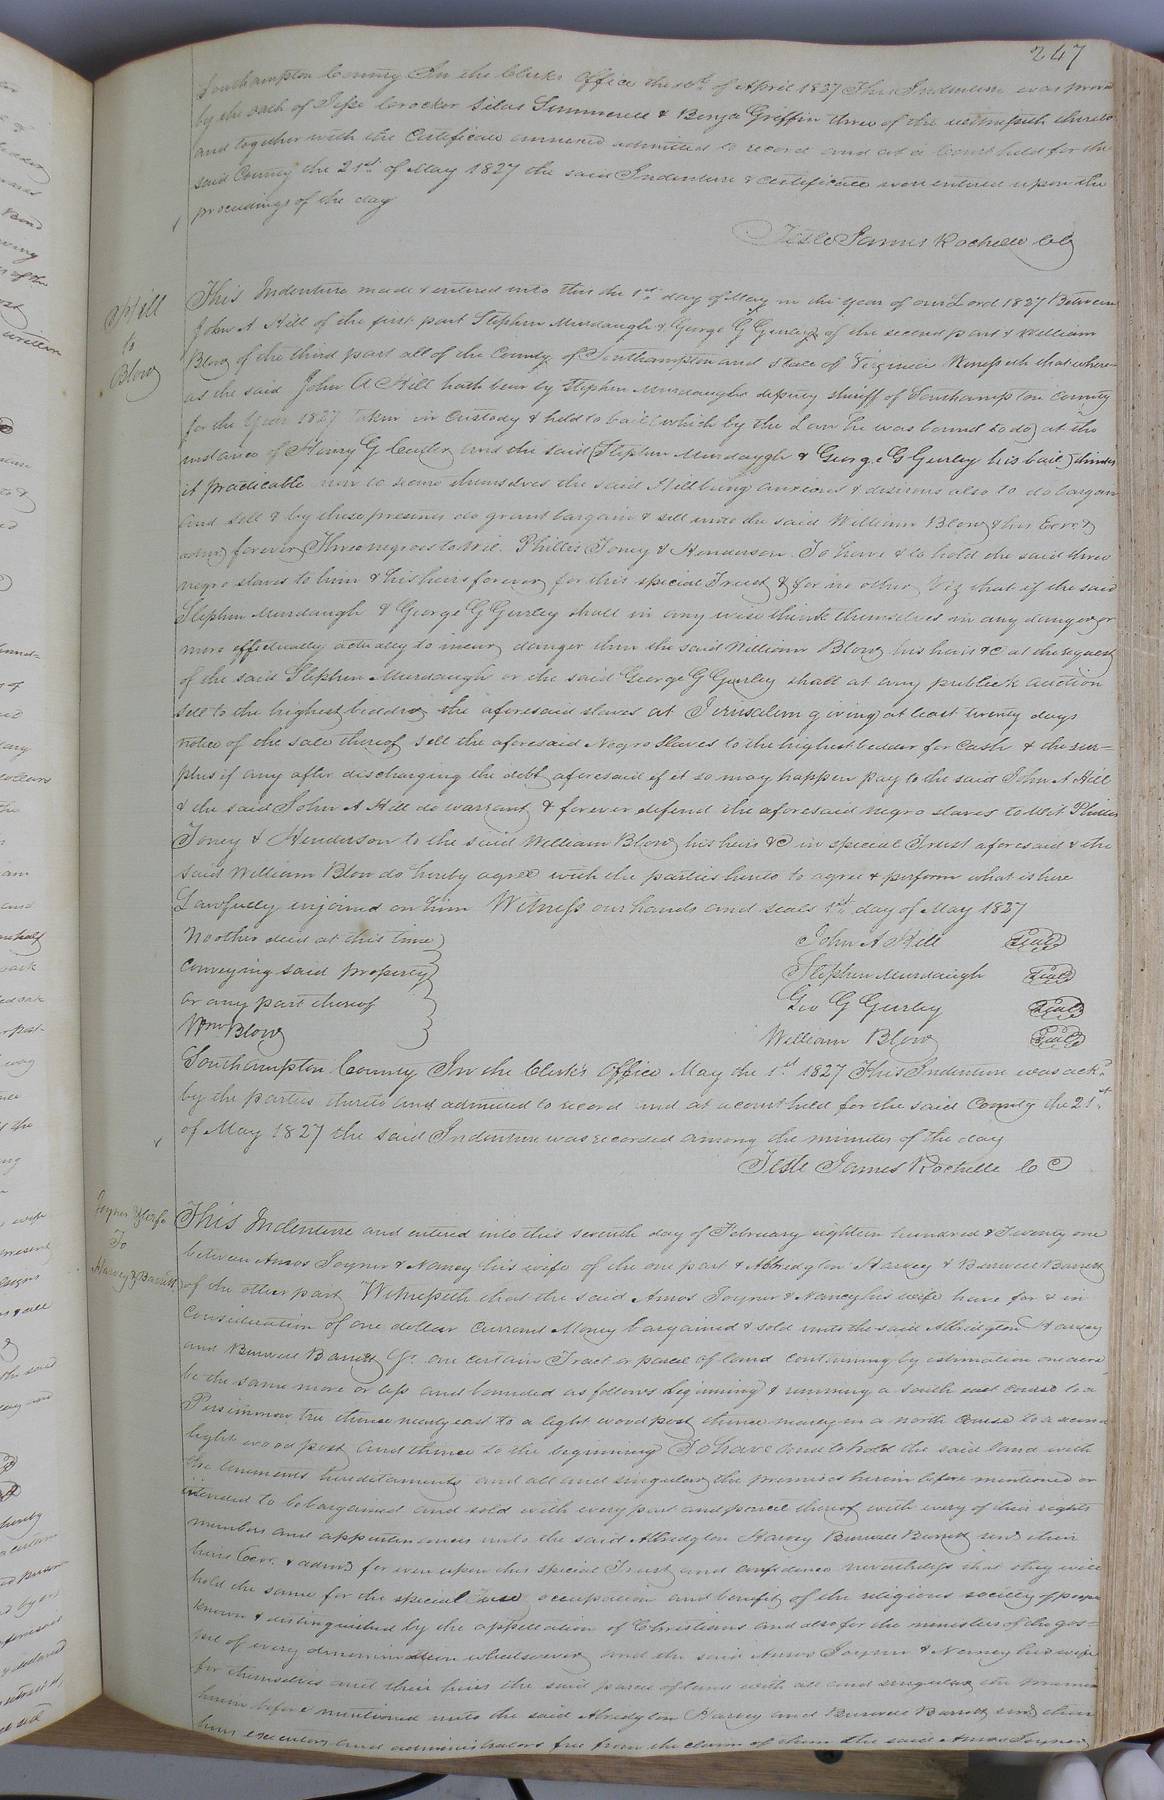 247
Southampton County In the Clerks Office the of April 1827 This Indenture was proved
by the oath of Jesse Crocker Silas Summerell & Benja Griffin three of the witnesseth thereto
and together with the Certificate annexed admitted to record and at a Court held for the
said County the 21st of May 1827 the said Indenture & Certificate were entered upon the
proceedings of the day
Teste James Rochelle CC
Hill
to
Blow
This Indenture made & entered into this the 1st day of May in the year of our Lord 1827 Between
John A Hill of the first part Stephen Murdaugh & George G Gurley of the second part & William
Blow of the third part all of the County of Southampton and State of Virginia Witnesseth that where=
as the said John A Hill hath been by Stephen Murdaugh deputy sheriff of Southampton County
for the Year 1827 taken in Custody & held to bail (which by the Law he was bound to do) at the
instance of Henry G Cutler and the said (Stephen Murdaugh & George G Gurley his bail)
it practicable now to secure themselves the said Hill being anxious & desirous also to do bargain
and sell & by these presents do grant bargain & sell unto the said William Blow & his Exors &
admrs forever Three negroes to wit. Phillis Toney & Henderson. To have & to hold the said three
negro slaves to him & his heirs forever for this special Trust & for no other Viz that if the said
Stephen Murdaugh & George G Gurley shall in any wise think themselves in any danger or
more effectually actually to incur danger then the said William Blow his heirs &c at the request
of the said Stephen Murdaugh or the said George G Gurley shall at any publick auction
sell to the highest bedder the aforesaid slaves at Jerusalem giving at least twenty days
notice of the sale thereof sell the aforesaid Negro Slaves to the highest bedder for Cash & the sur=
plus if any after discharging the debt aforesaid if it so may happen pay to the said John A Hill
& the said John A Hill do warrant & forever defend the aforesaid negro slaves to Wit Phillis
Toney & Henderson to the said William Blow his heirs &C in special Trust aforesaid & the
said William Blow do hereby agree with the parties hereto to agree & perform what is here
Lawfully injoined on him Witness our hands and seals 1st day of May 1827
No other deed at this time John A Hill Seal
Conveying said property Stephen Murdaugh Seal
or any part thereof Geo G Gurley Seal
Wm Blow William Blow Seal
Southampton County In the Clerk's Office May the 1st 1827 This Indenture was ackd
by the parties thereto and admitted to record and at a court held for the said County the 21st
of May 1827 the said Indenture was recorded among the minutes of the day
Teste James Rochelle C C
Joyner & wife
To
Harvey & Barrett
This Indenture and entered into this seventh day of February eighteen hundred & Twenty one
between Amos Joyner & Nancy his wife of the one part & Albridgton Harvey & Burwell Barrett
of the other part Witnesseth that the said Amos Joyner & Nancy his wife have for & in
Consideration of one dollar Current Money bargained & sold unto the said Albridgton Harvey
and Burwell Barrett Jr. one certain Tract or parcel of land containing by estimation one acre
be the same more or less and bounded as follows beginning & running a south east course to a
Persimmon tree thence nearly east to a light wood post thence in a north Course to a second
light wood post and thence to the beginning To have and to hold the said land with
the tenements hereditaments and all and singular the premises herein before mentioned or
intended to be bargained and sold with every part and parcel thereof with every of their rights
members and appurtenances unto the said Albridgton Harvey Burwell Barrett and their
heirs Exor. & admrs for ever upon this special Trust and confidence nevertheless that they will
hold the same for the special use occupation and benefit of the religious society of people
known & distinguished by the appellation of Christians and also for the ministers of the gos=
pel of every denomination whatsoever and the said Amos Joyner & Nancy his wife
for themselves and their heirs the said parcel of land with all and singular the premises
herein before mentioned unto the said Albridgton Harvey and Burwell Barrett and their
heirs executors and administrators free from the claim of them the said Amos Joyner